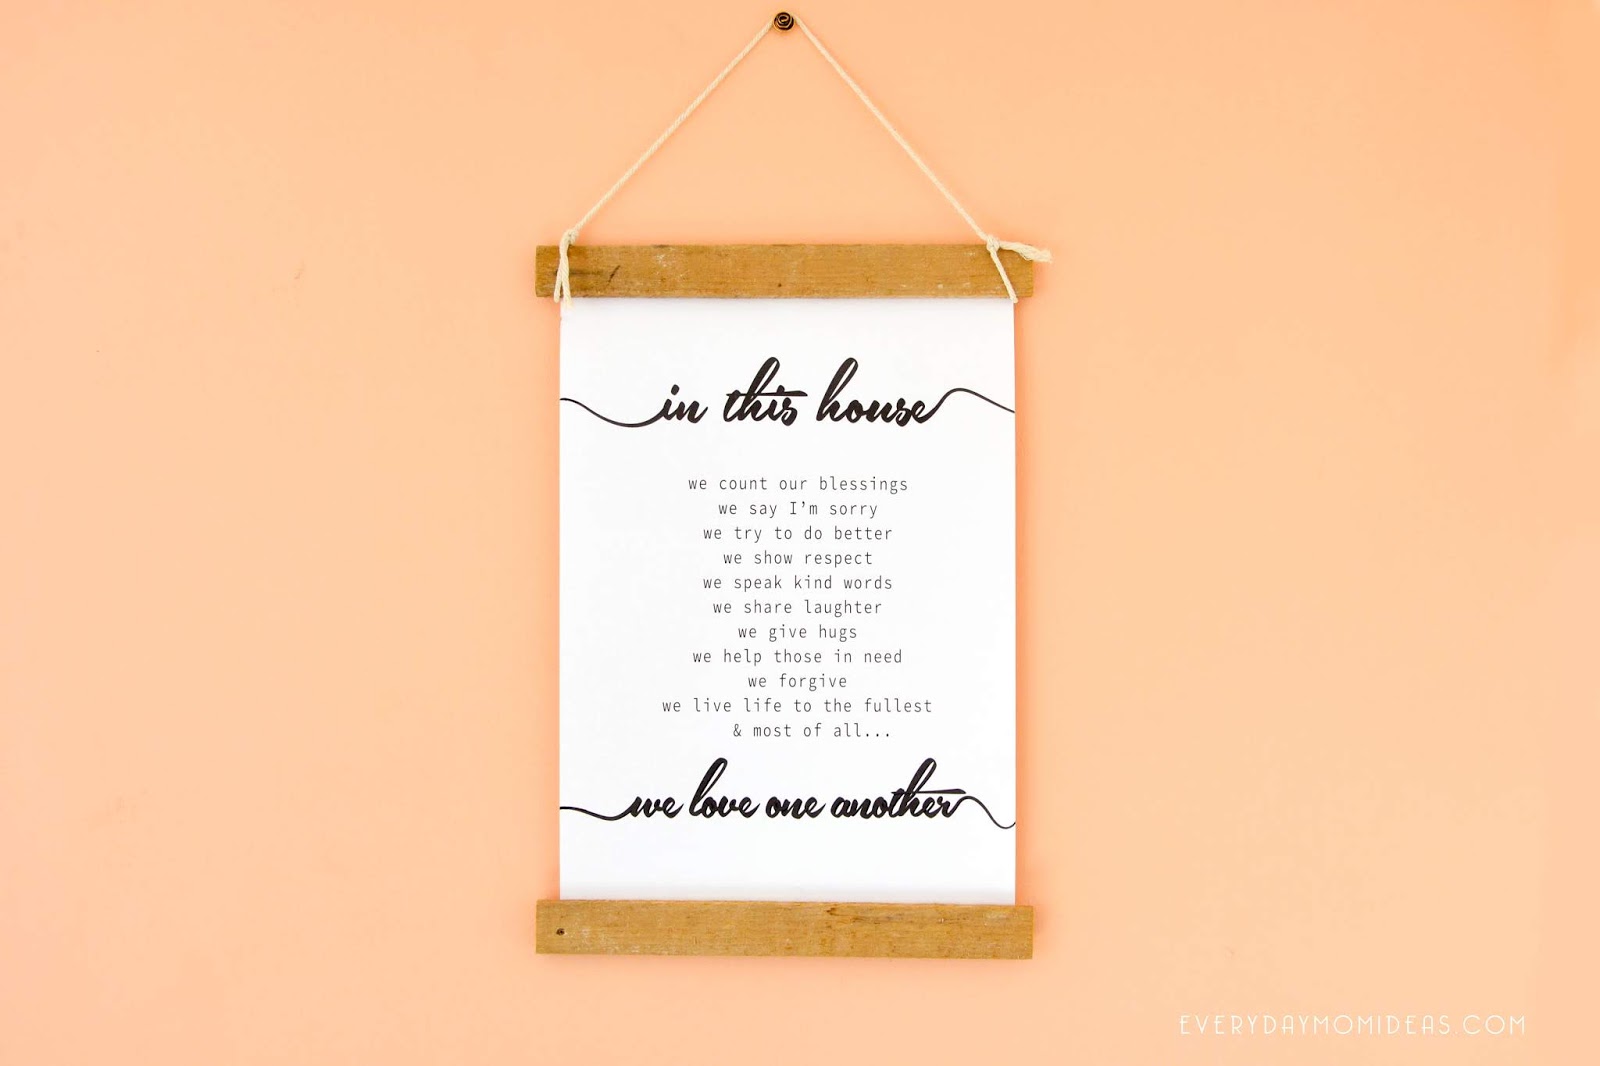 in this house
we count our blessings
we say I'm sorry
we try to do better
we show respect
we speak kind words
we share laughter
we give hugs
we help those in need
we forgive
we live life to the fullest
& most of all...
we love one another
EVERYDAYMOMIDEAS.COM